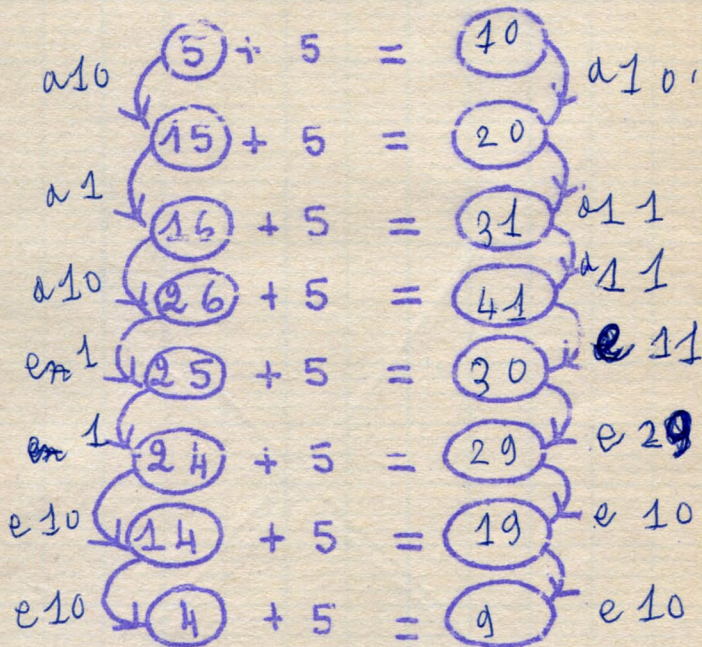 5 + 5 = 10
a10 a10
15 + 5 = 20
a1 a11
16 + 5 = 31
a10 a11
26 + 5 = 41
en1 e 11
25 + 5 = 30
en 1 e 29
24 + 5 = 29
e10 e 10
14 + 5 = 19
e10 e10
4 + 5 = 9